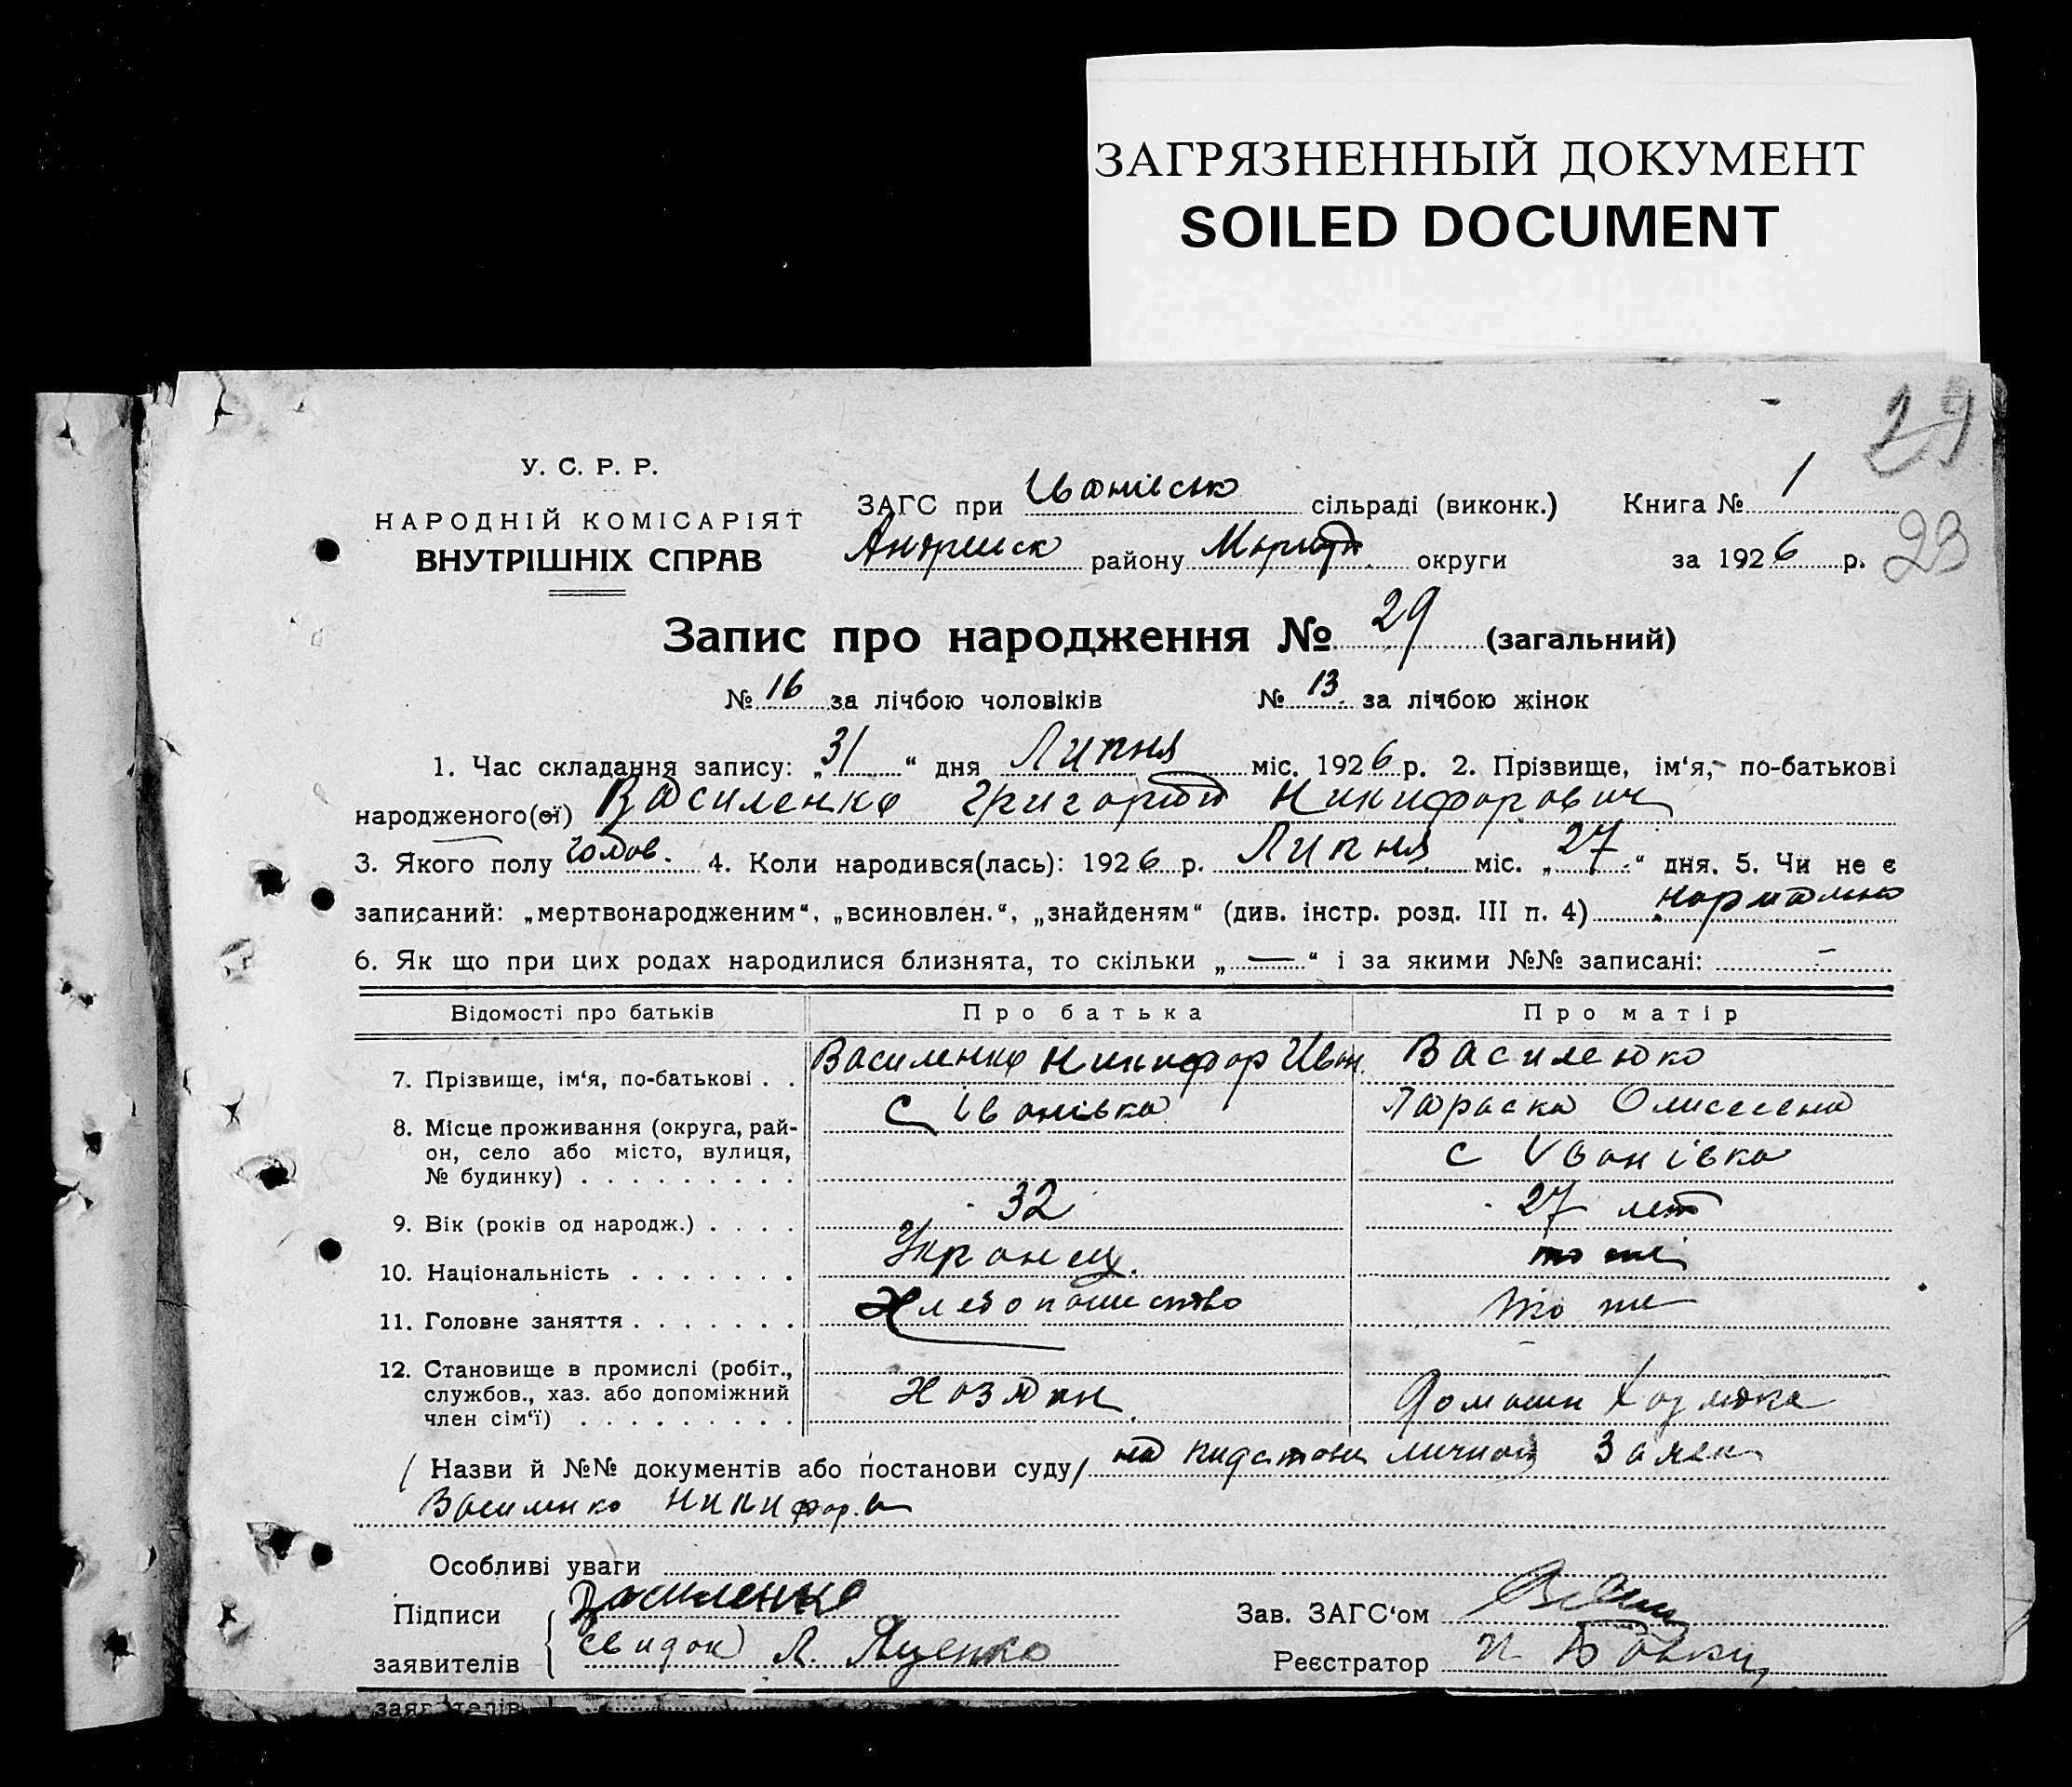 ЗАГРЯЗНЕННЫЙ ДОКУМЕНТ
SOILED DOCUMENT
29
23
У. С. Р. Р.
НАРОДНІЙ КОМІСАРІЯТ
ВНУТРІШНІХ СПРАВ
ЗАГС при Іванівсько сільраді (виконк.) Книга № 1
району округи за 1926 р.
Запис про народження № 29 (загальний)
№ 16 за лічбою чоловіків № 13 за лічбою жінок
1. Час складання запису: „31“ дня Липня міс. 1926 р. 2. Прізвище, ім‘я, по-батькові
народженого(ої) Василенко Григорій Никифорович
3. Якого полу 4. Коли народився(лась): 1926 р. Липня міс. „27“ дня. 5. Чи не є
записаний: „мертвонародженим“, „всиновлен.“, „знайденям“ (див. інстр. розд. III п. 4) нормально
6. Як що при цих родах народилися близнята, то скільки „—“ і за якими №№ записані: –
Відомості про батьків Про батька Про матір
7. Прізвище, ім‘я, по-батькові . . Василенко Никифор Иван. Василенко
Параска
8. Місце проживання (округа, рай-
он, село або місто, вулиця,
№ будинку) . . . . . . . . . с Іванівка с Иванівка
9. Вік (років од народж.) . . . . 32 27 лет
10. Національність . . . . . . . Укранец. то же
11. Головне заняття . . . . . . . Хлебопашество то же
12. Становище в промислі (робіт.,
службов., хаз. або допоміжний
член сім‘ї) . . . . . . . . . Хозяин Домашн Хозяйка
/ Назви й №№ документів або постанови суду/ на пидстови личной Заяви
Василенко Никифора
Особливі уваги
Підписи Василенко Зав. ЗАГС‘ом
заявителів свидок Л. Яценко Реєстратор
заявителів